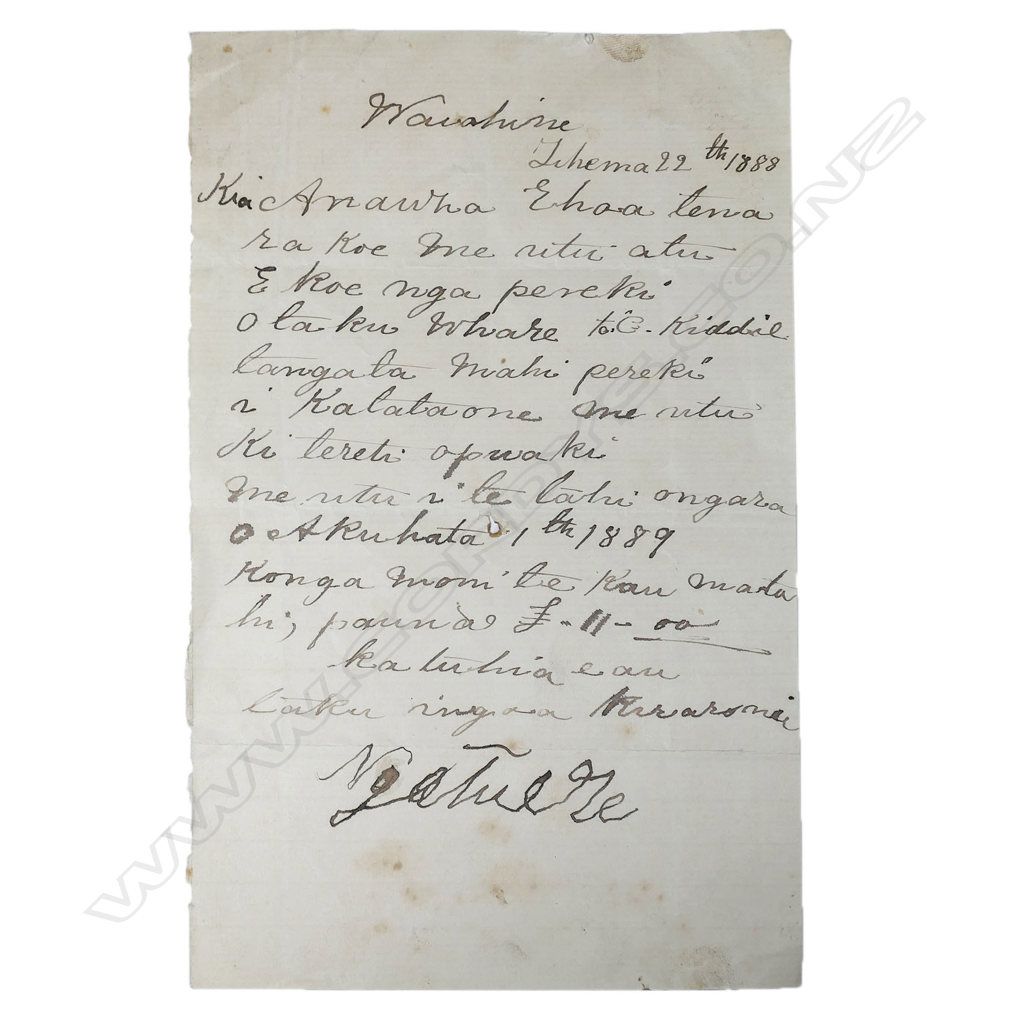 Waiohine
Tihema 22th 1888
Kia Anawha Ehoa tena
ra koe me utu atu
E koe nga pereki
o taku whare to C. Kiddil
tangata Mahi pereki
i Katataone me utu
Ki tereti opuaki
me utu i te tahi ongara
o Akuhata 1th 1889
Konga moni te kau mata
hi, pauna £-11-00
ka tuhia e au
taku ingoa
www.cordys.co.nz